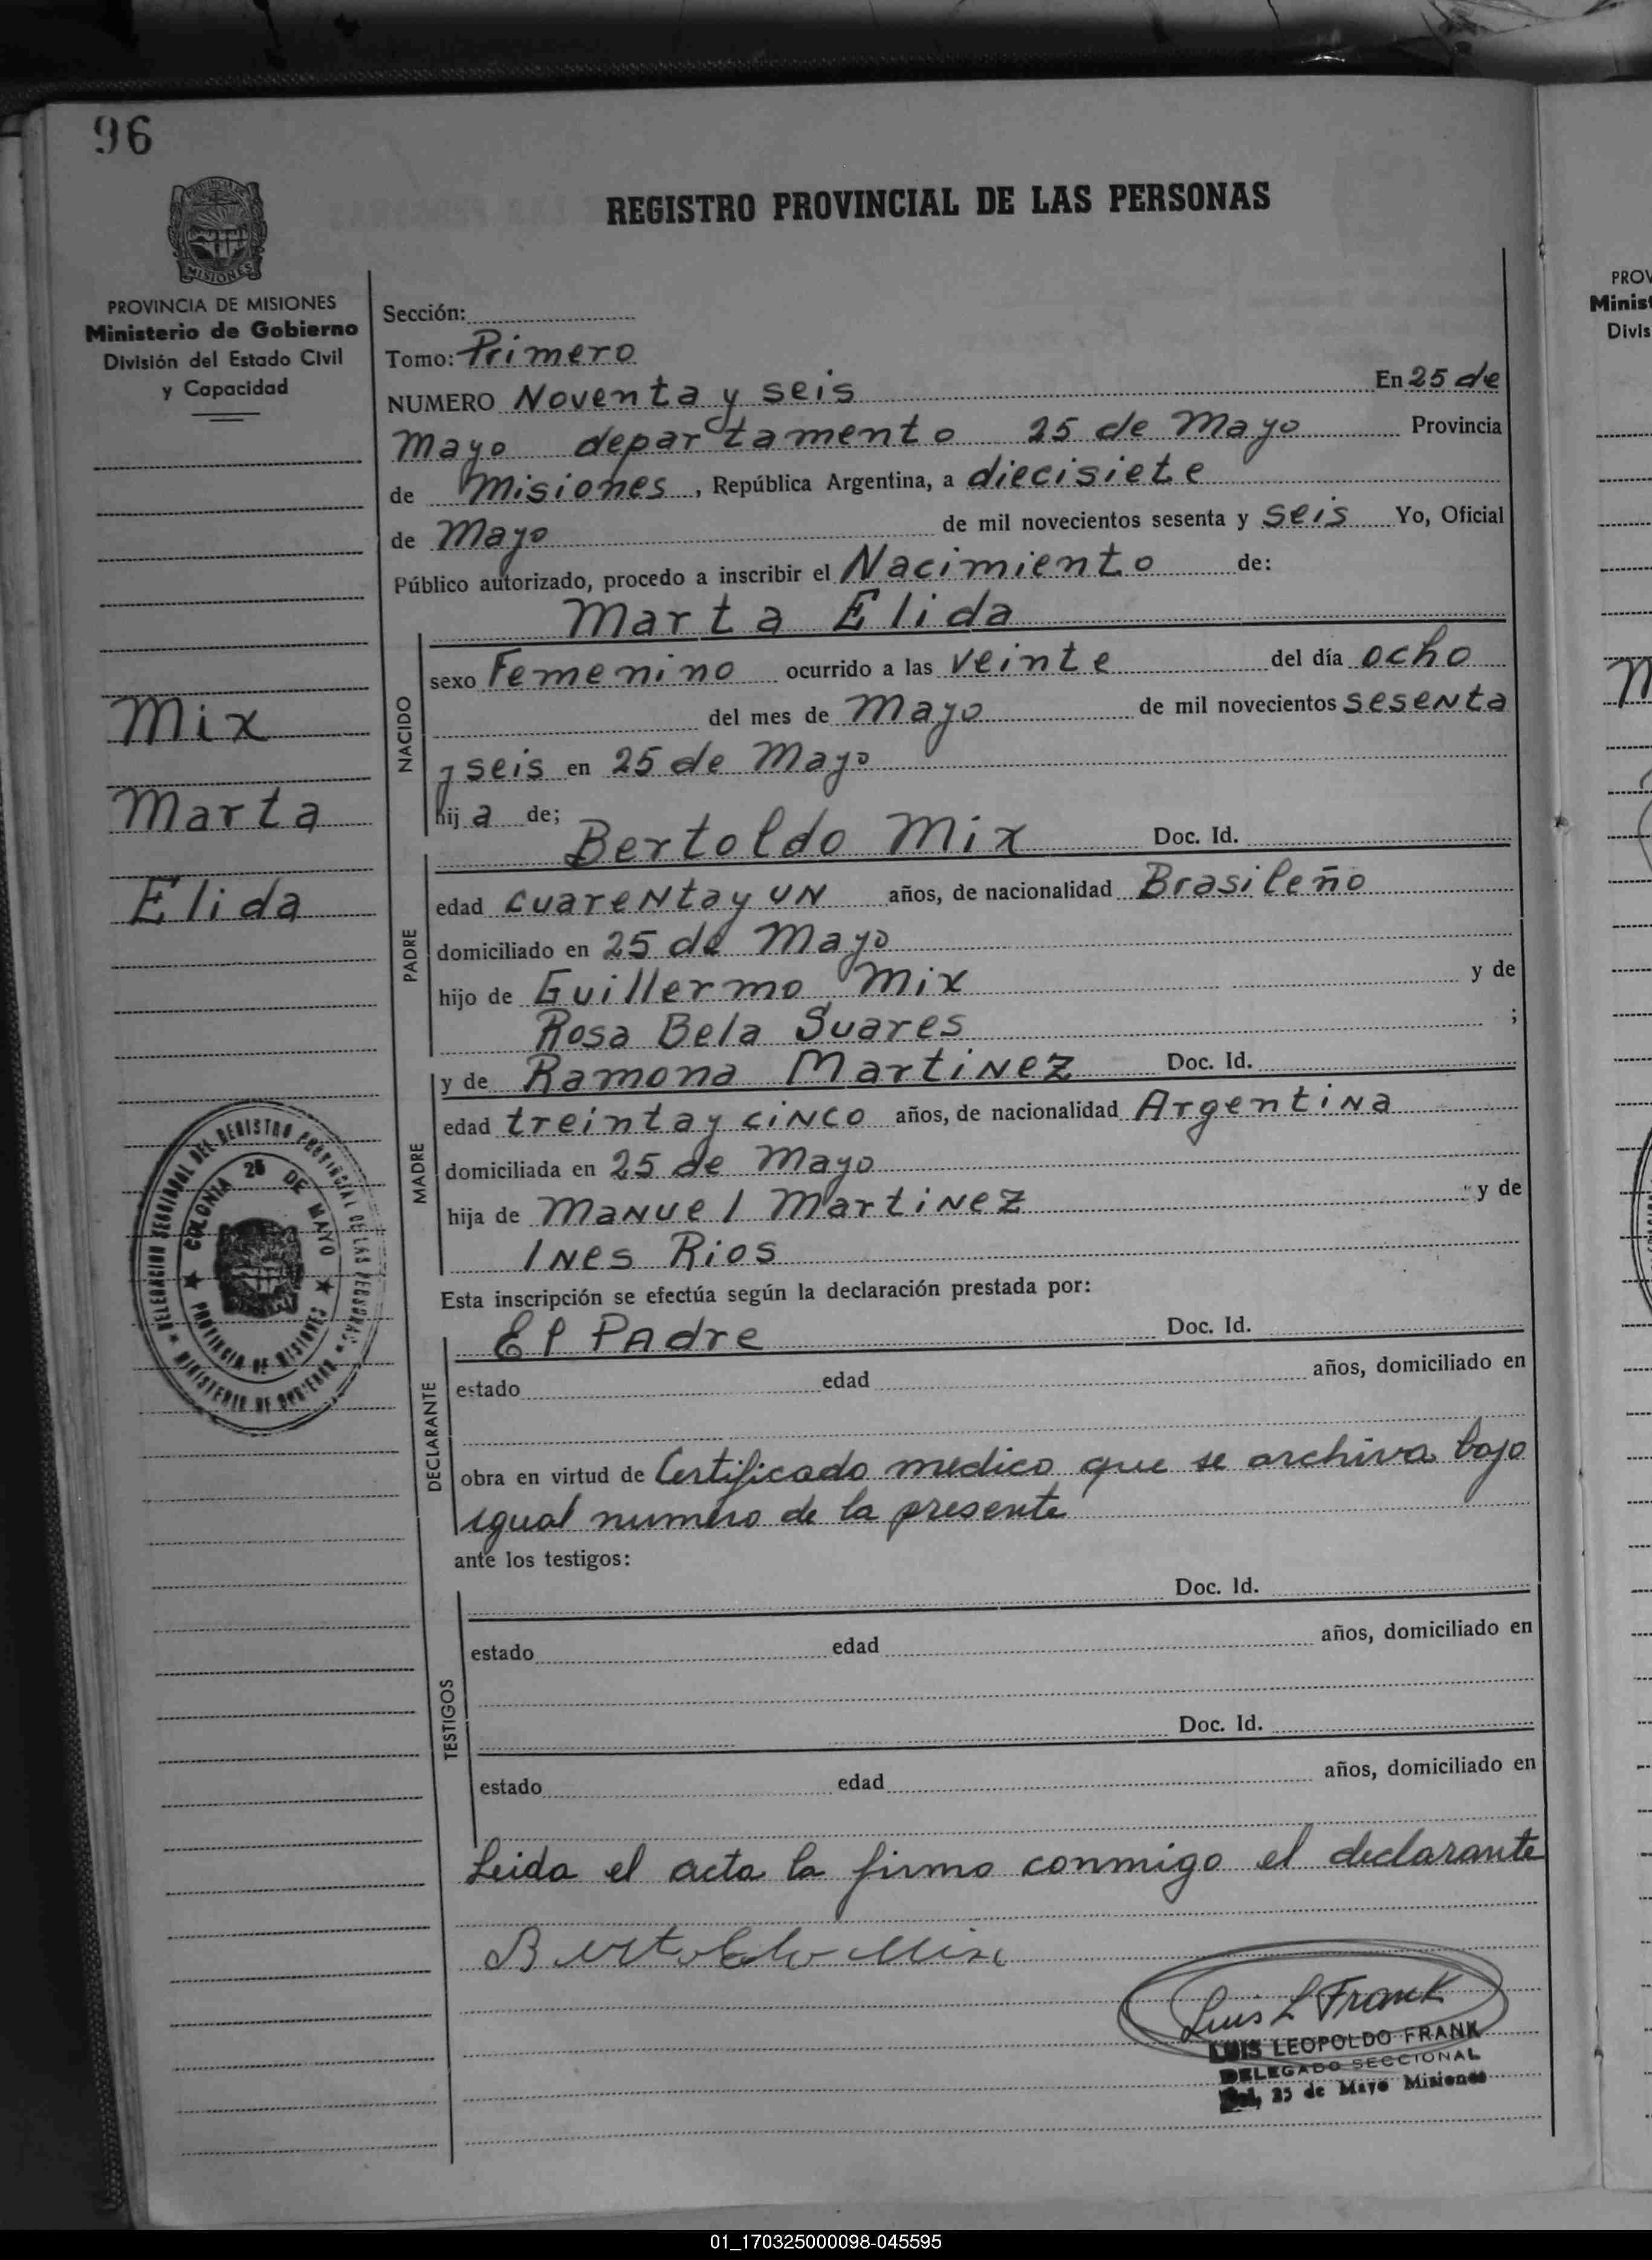 96
PROVINCIA DE MISIONES
REGISTRO PROVINCIAL DE LAS PERSONAS
PROVINCIA DE MISIONES
Ministerio de Gobierno
División del Estado Civil
y Capacidad
Mix
Marta
Elida
DELEGACION SECCIONAL DEL REGISTRO PROVINCIAL DE LAS PERSONAS
MINISTERIO DE GOBIERNO
COLONIA 25 DE MAYO
PROVINCIA DE MISIONES
Sección:
Tomo: Primero
NUMERO Noventa y seis En 25 de
Mayo departamento 25 de Mayo Provincia
de Misiones, República Argentina, a diecisiete
de Mayo de mil novecientos sesenta y seis Yo, Oficial
Público autorizado, procedo a inscribir el Nacimiento de:
Marta Elida
NACIDO
sexo Femenino ocurrido a las veinte del día ocho
del mes de Mayo de mil novecientos sesenta
y seis en 25 de Mayo
hija de;
Bertoldo Mix Doc. Id.
PADRE
edad cuarenta y un años, de nacionalidad Brasileño
domiciliado en 25 de Mayo
hijo de Guillermo Mix y de
Rosa Bela Suares ;
y de Ramona Martinez Doc. Id.
MADRE
edad treinta y cinco años, de nacionalidad Argentina
domiciliada en 25 de Mayo
hija de Manuel Martinez y de
Ines Rios
Esta inscripción se efectúa según la declaración prestada por:
El Padre Doc. Id.
DECLARANTE
estado edad años, domiciliado en
obra en virtud de Certificado medico que se archiva bajo
igual numero de la presente
ante los testigos:
Doc. Id.
TESTIGOS
estado edad años, domiciliado en
Doc. Id.
estado edad años, domiciliado en
Leida el acta la firma conmigo el declarante
Bertoldo Mix
Luis L Frank
LUIS LEOPOLDO FRANK
DELEGADO SECCIONAL
25 de Mayo Misiones
PROV
Minist
Divis
01_170325000098-045595